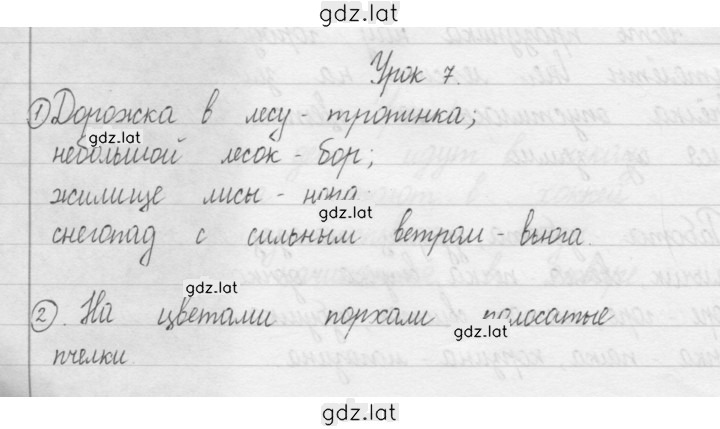 gdz.lat
Урок 7.
1 Дорожка в лесу - тропинка;
gdz.lat
небольшой лесок - бор;
жилище лисы - нора
gdz.lat
снегопад с сильным ветром - вьюга.
gdz.lat
2. На цветами порхали полосатые
gdz.lat
пчелки.
gdz.lat